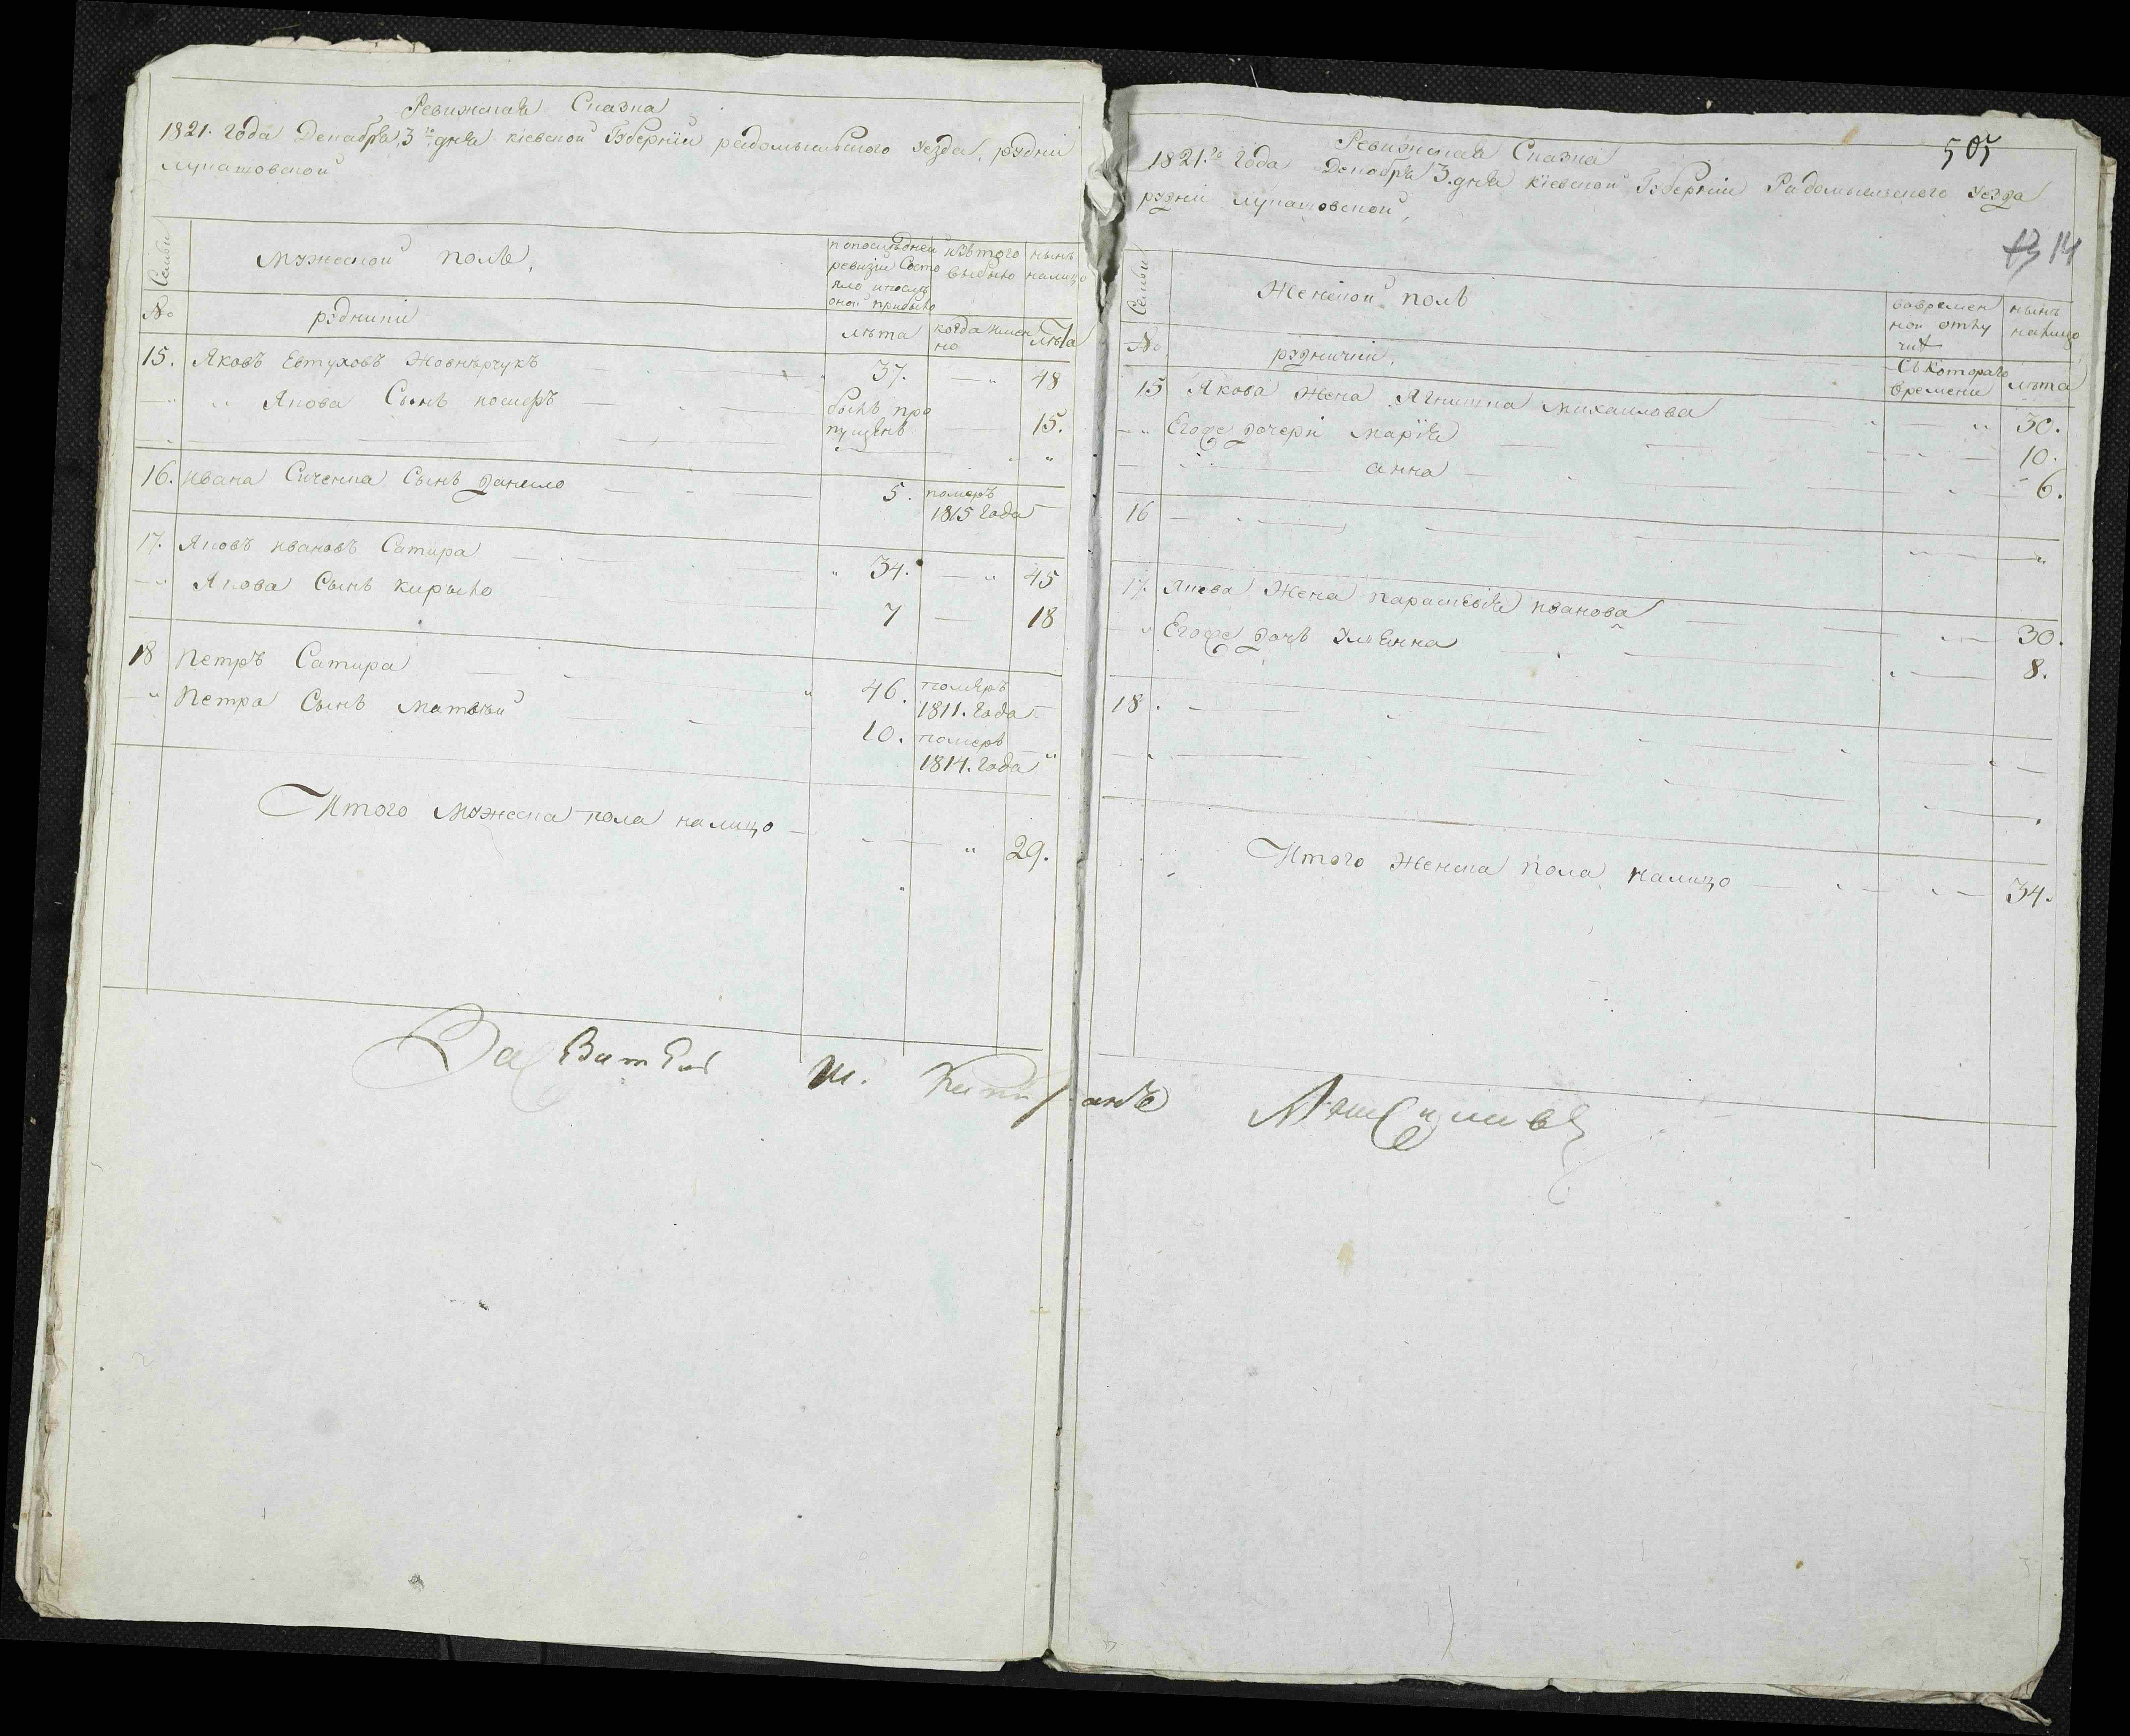 Ревижская Сказка
1821. года Декабря, 3го дня киевской Губернии радомысльского уезда, рудни
лупатовской
Семьи
мужеской полъ,
попоследней ревизіи Состояло ипослѣ оной прибыло
изъ того выбыло
нынѣ налицо
№
рудники
лѣта
когда именно
лѣта
15. Яковъ Евтуховъ Жовнѣрчукъ 37. — 48
Якова Сынъ былъ пропущенъ 15.
16. ивана Сиченка Сынъ данило 5. померъ 1815 года
17. Яковъ ивановъ Сатира 34. — 45
Якова Сынъ кирыло 7 — 18
18 петръ Сатира 46. померъ 1811. года
Петра Сынъ матвѣй 10. померъ 1814. года
Итого мужеска пола налицо 29.
505
Ревижская Сказка
1821.го года Декабря 3. дня киевской Губернии Радомысльского уезда
рудни лупатовской,
14
Семьи
Женской полъ
вовременной отлучкѣ
нынѣ налицо
№
руднички,
Съ Котораго времени
лѣта
15 Якова Жена Ягнишка михайлова 30.
Егоже дочери марія 10.
анна 6.
16
17. Якова Жена параскевія иванова 30.
Егоже дочь улиянна 8.
18.
Итого женска пола налицо 34.